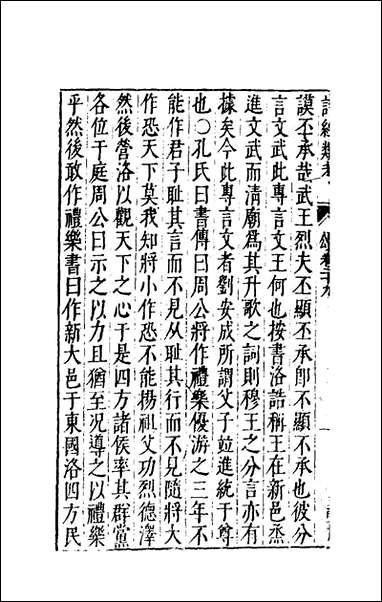 詩經類考
頌卷十九
謨丕承哉武王烈夫丕顯丕承卽不顯不承也彼分
言文武此專言文王何也按書洛誥稱王在新邑烝
進文武而淸廟爲其升歌之詞則穆王之分言亦有
據矣今此專言文者劉安成所謂父子竝進統于尊
也○孔氏曰書傳曰周公將作禮樂優游之三年不
能作君子耻其言而不見從耻其行而不見隨將大
作恐天下莫我知將小作恐不能揚祖父功烈德澤
然後營洛以觀天下之心于是四方諸侯率其群黨
各位于庭周公曰示之以力且猶至况導之以禮樂
乎然後敢作禮樂書曰作新大邑于東國洛四方民